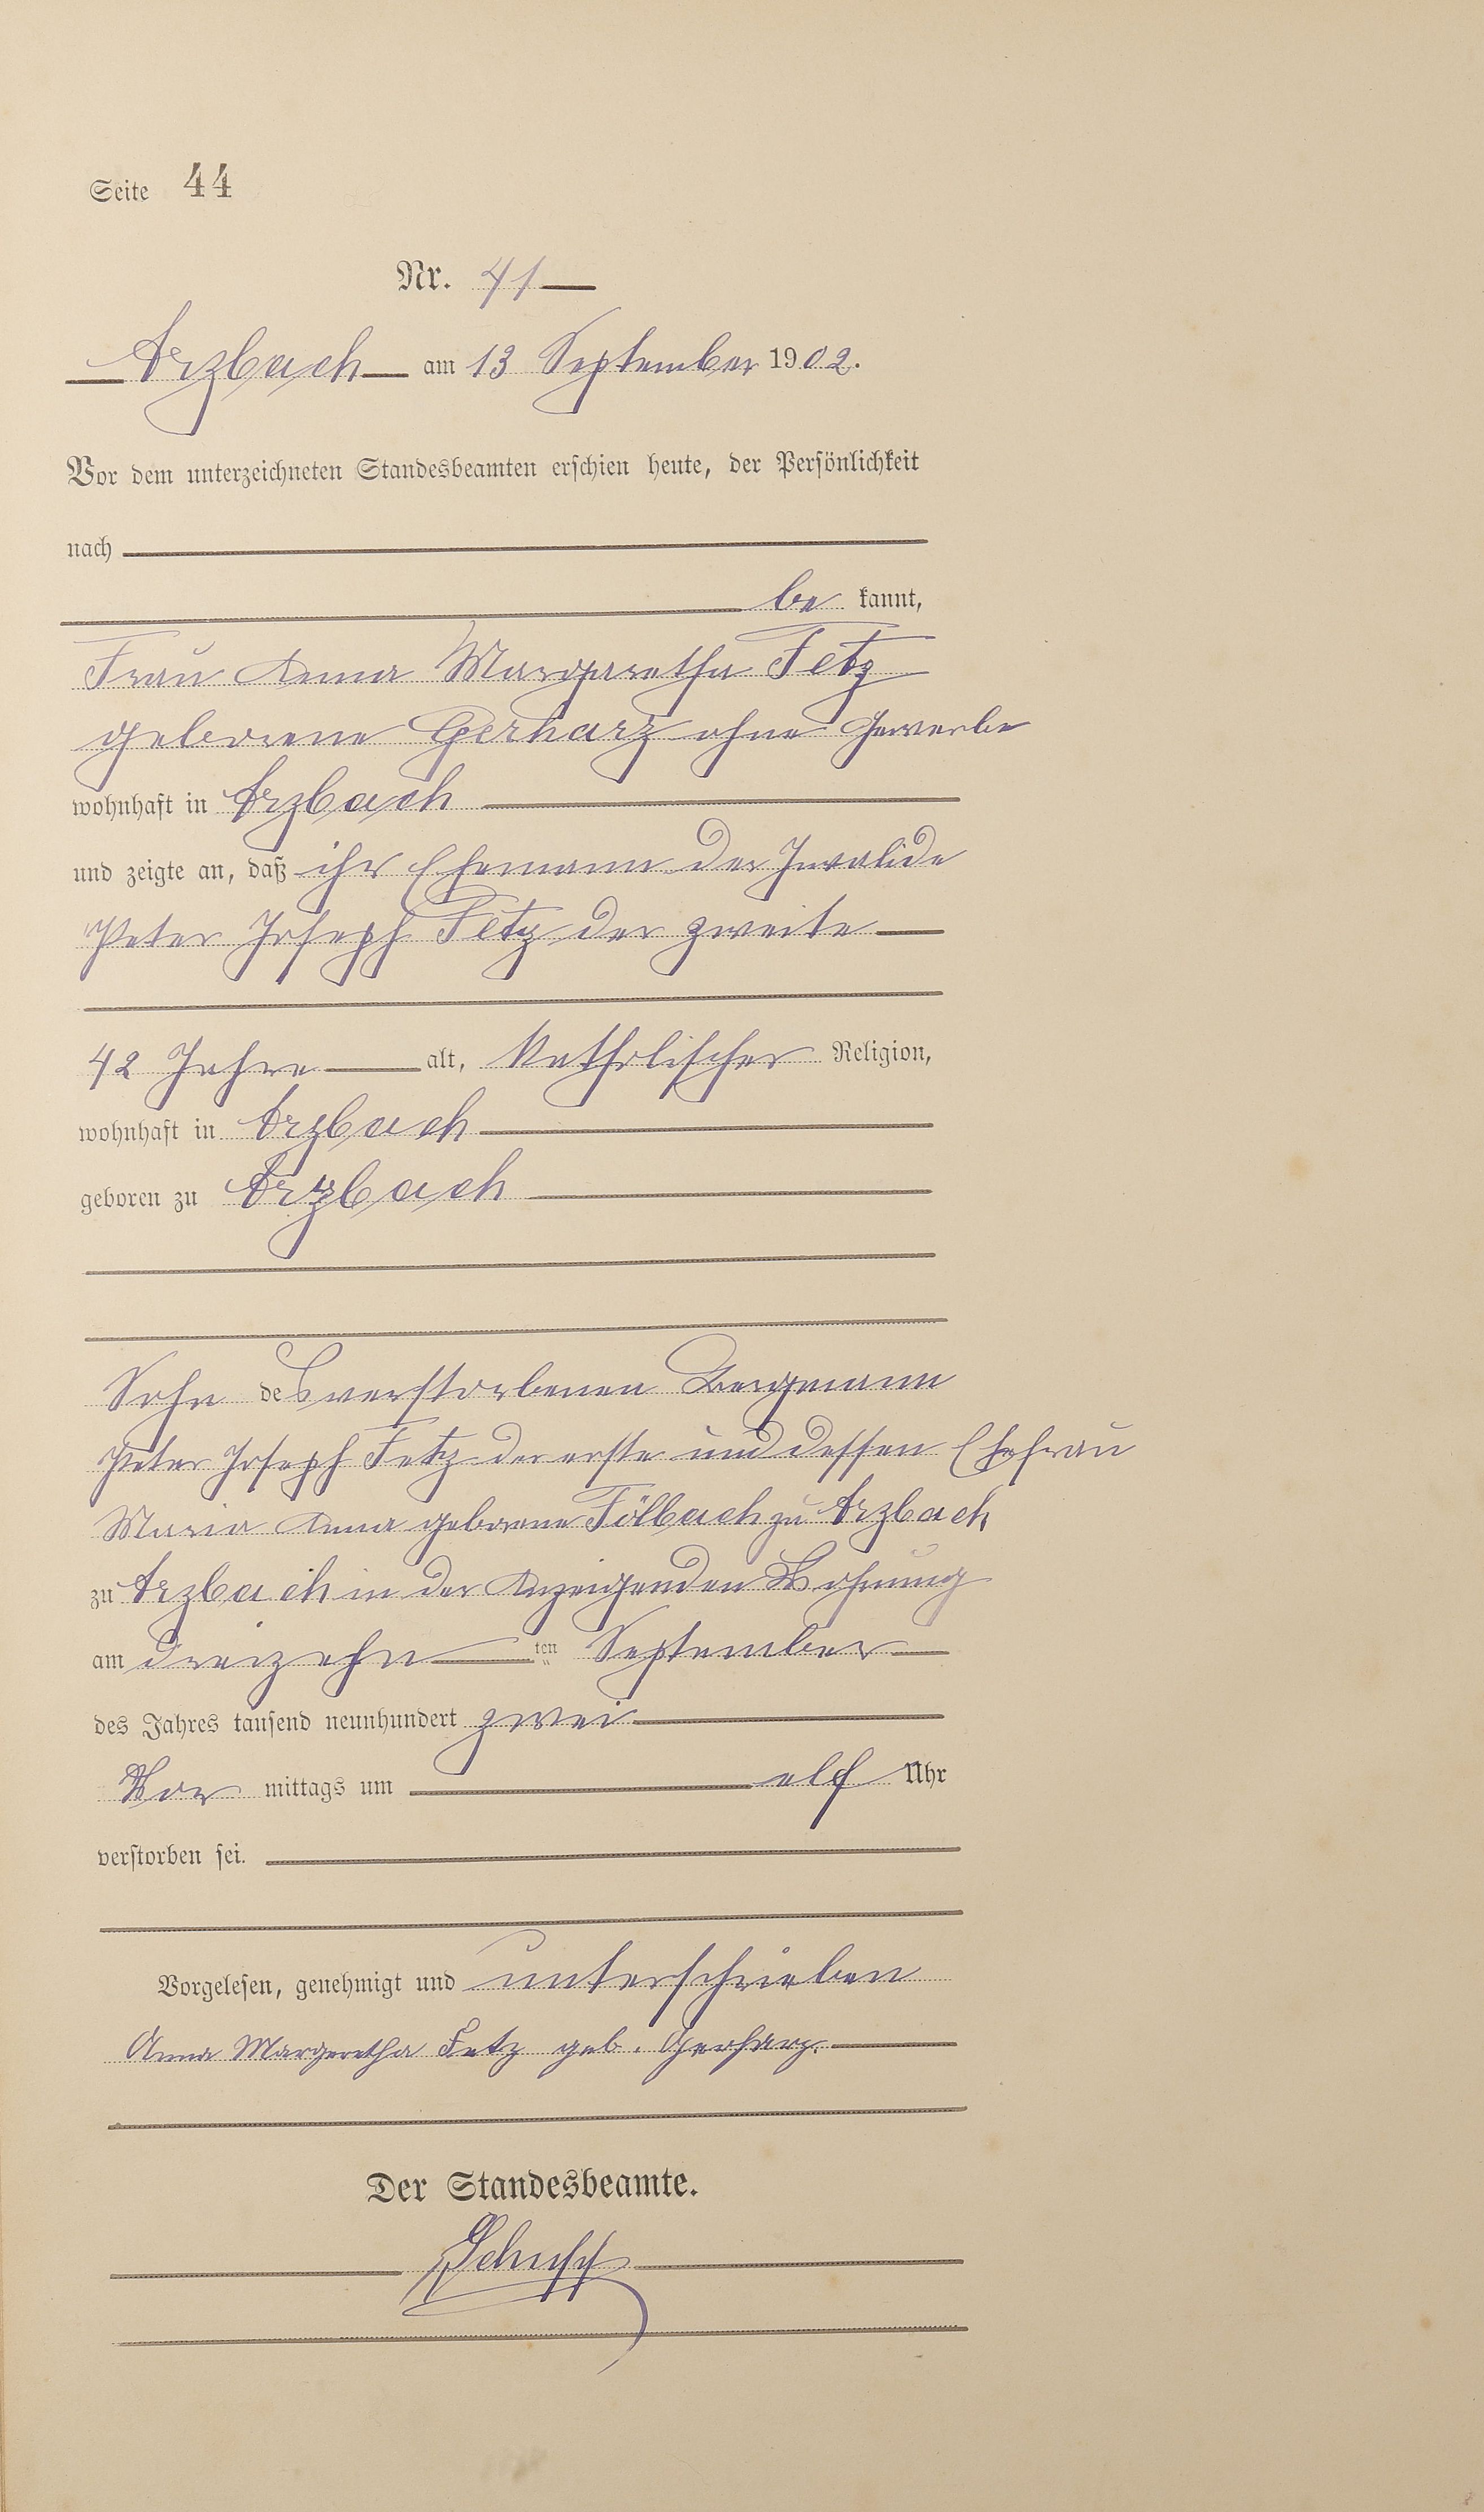 Seite 44
Nr. 41
Arzbach am 13 September 1902.
Vor dem unterzeichneten Standesbeamten erschien heute, der Persönlichkeit
nach
be kannt,
Frau Anna Margaretha Fetz
geborene Gerharz ohne Gewerbe
wohnhaft in Arzbach
und zeigte an, daß ihr Ehemann der Invalide
Peter Joseph Fetz der zweite
42 Jahre alt, Katholischer Religion,
wohnhaft in Arzbach
geboren zu Arzbach
Sohn des verstorbenen Bergmann
Peter Joseph Fetz der erste und dessen Ehefrau
Maria Anna geborene Fölbach zu Arzbach
zu Arzbach in der Anzeigenden Wohnung
am dreizehn ten September
des Jahres tausend neunhundert zwei
Vor mittags um elf Uhr
verstorben sei.
Vorgelesen, genehmigt und unterschrieben
Anna Margeretha Fetz geb. Gerharz.
Der Standesbeamte.